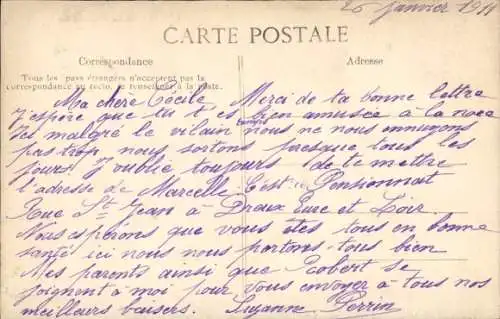 26 Janvier 1911
CARTE POSTALE
Correspondance
Adresse
Tous les pays étrangers n'acceptent pas la
correspondance au recto, se renseigner à la poste.
Ma chère Cécile Merci de ta bonne lettre
J'espère que tu t'es bien amusée à la noce
Ici malgré le vilain temps nous ne nous ennuyons
pas trop nous sortons presque tous les
jours. J'oublie toujours de te mettre
l'adresse de Marcelle. C'est: Pensionnat
Rue St Jean à Dreux Eure et Loir.
Nous espérons que vous êtes tous en bonne
santé ici nous nous portons tous bien
Mes parents ainsi que Robert se
joignent à moi pour vous envoyer à tous nos
meilleurs baisers. Suzanne Perrin